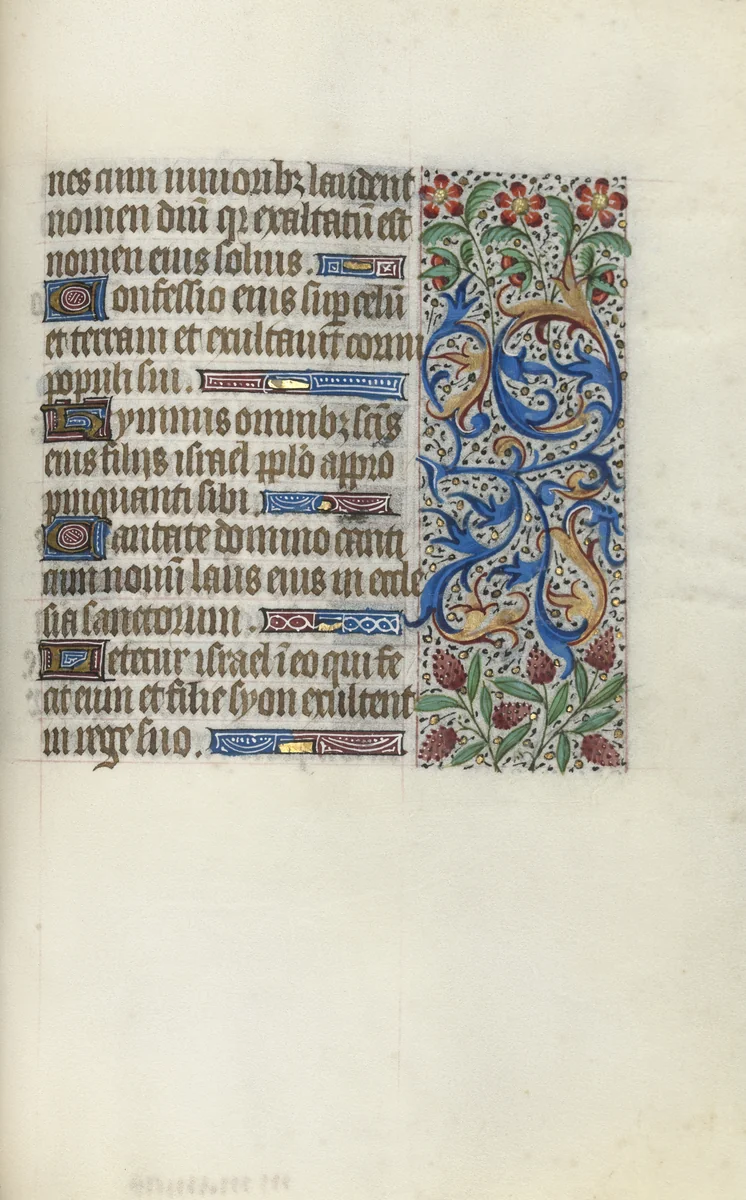 nes cum iunioribꝫ laudent
nomen dñi qꝛ exaltatū est
nomen eius solius.
Confessio eius sup celū
et terram et exultauit cornu
populi sui.
Hymnus omnibꝫ scīs
eius filijs israel pplo appro
pinquanti sibi.
Cantate domino canti
cum nouū laus eius in eccle
sia sanctorum.
Letetur israel ī eo qui fe
cit eum et filie syon exultent
in rege suo.